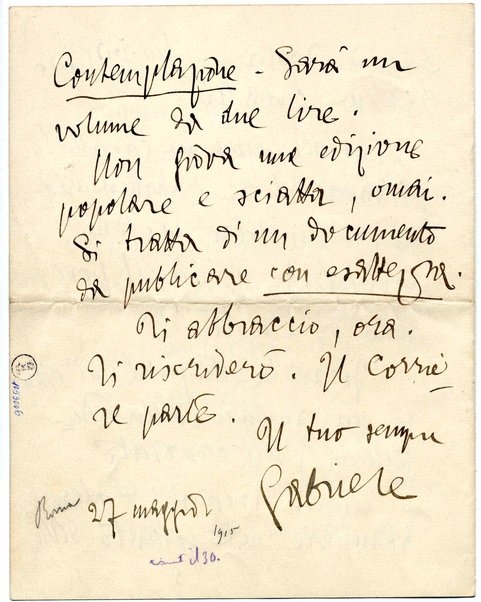 Contemplazione – Sarà un
volume da due lire.
Non giova una edizione
popolare e sciatta, omai.
Si tratta di un documento
da publicare con esattezza.
Ti abbraccio, ora.
Ti riscriderò. Il Corrie=
re parte.
Il tuo sempre
Gabriele
Roma
27 maggio
1915
il 30.